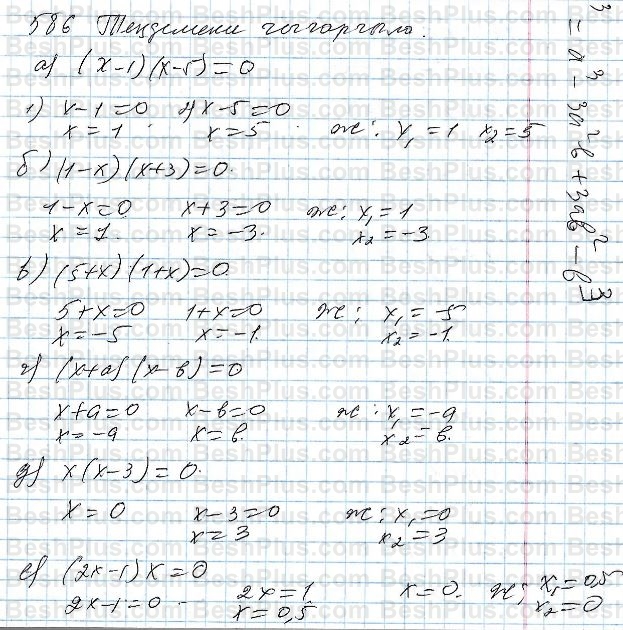 586 Теңдемени чыгаргыла.
а) (x-1)(x-5)=0
1) x-1=0 2) x-5=0
x=1 x=5 ж: x₁=1 x₂=5
б) (1-x)(x+3)=0.
1-x=0 x+3=0 ж: x₁=1
x=1. x=-3. x₂=-3
в) (5+x)(1+x)=0.
5+x=0 1+x=0 ж: x₁=-5
x=-5 x=-1. x₂=-1.
г) (x+a)(x-b)=0
x+a=0 x-b=0 ж: x₁=-a
x=-a x=b. x₂=b.
д) x(x-3)=0.
x=0 x-3=0 ж: x₁=0
x=3 x₂=3
е) (2x-1)x=0
2x-1=0 2x=1 x=0. ж: x₁=0,5
x=0,5 x₂=0
³=a³-3a²b+3ab²-b³
BeshPlus.com